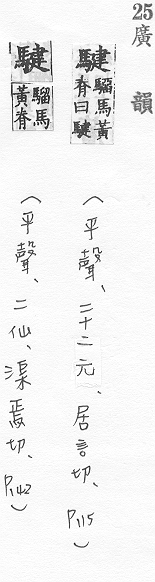 25廣韻
騝 騮馬黃脊曰騝
(平聲、二十二元、居言切、P.115)
騝 騮馬黃脊
(平聲、二仙、渠焉切、P.142)